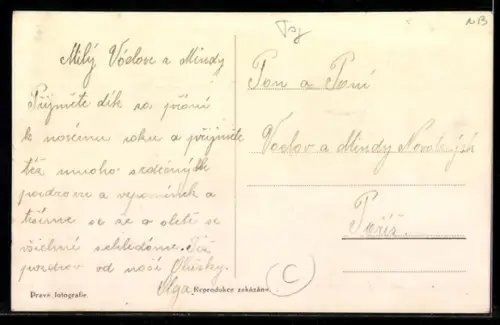 Milý Václave a Mindy
Přijměte dík za přání
k novému roku a přijměte
též mnoho srdečných
pozdravů a vzpomínek a
těšíme se že v létě se
všichni sehledáme. Též
pozdrav od naší Oličky.
Olga
Pravá fotografie.
Reprodukce zakázána
Pan a Paní
Václav a Mindy Novotných
Paříž.
C
NB